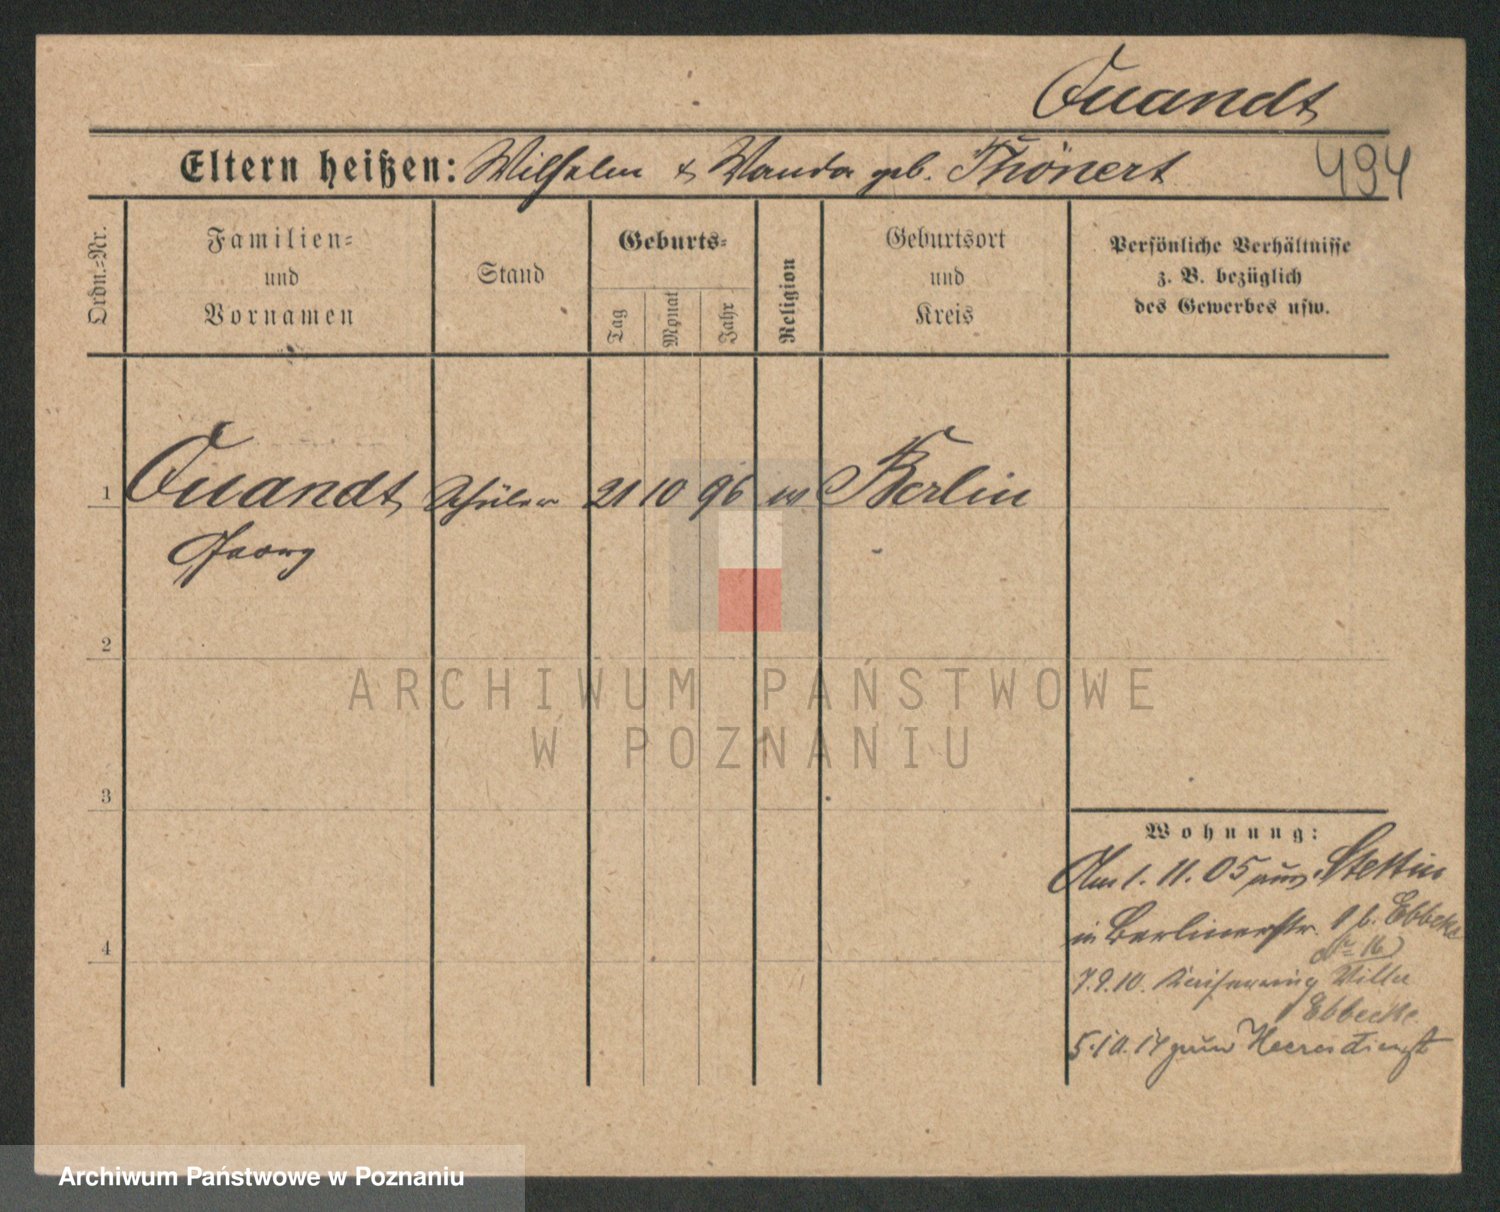 Quandt
494
Eltern heißen: Wilhelm & Wanda geb. Thönert
Ordn.-Nr.
Familien- und Vornamen
Stand
Geburts-
Tag
Monat
Jahr
Religion
Geburtsort und Kreis
Persönliche Verhältnisse
z. B. bezüglich
des Gewerbes usw.
1 Quandt Schüler 21 10 96 Berlin
Georg
2
ARCHIWUM PAŃSTWOWE
W POZNANIU
3
Wohnung:
Am 1. 11. 05 aus Stettin
in Berlinerstr. 9 b. Ebbeke
4
Nr 16
7.9.10. Kaiserring Villa
Ebbecke
5.10.14 zum Heeresdienst
Archiwum Państwowe w Poznaniu